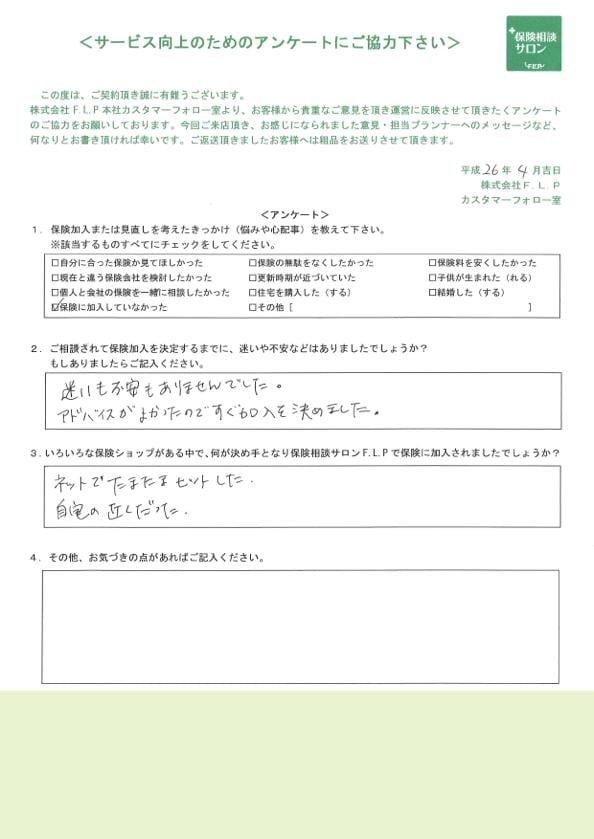 ＜サービス向上のためのアンケートにご協力下さい＞
保険相談
サロン
F.L.P
この度は、ご契約頂き誠に有難うございます。
株式会社F.L.P本社カスタマーフォロー室より、お客様から貴重なご意見を頂き運営に反映させて頂きたくアンケート
のご協力をお願いしております。今回ご来店頂き、お感じになられました意見・担当プランナーへのメッセージなど、
何なりとお書き頂ければ幸いです。ご返送頂きましたお客様へは粗品をお送りさせて頂きます。
平成 26 年 4 月吉日
株式会社F.L.P
カスタマーフォロー室
＜アンケート＞
1．保険加入または見直しを考えたきっかけ（悩みや心配事）を教えて下さい。
※該当するものすべてにチェックをしてください。
□自分に合った保険か見てほしかった □保険の無駄をなくしたかった □保険料を安くしたかった
□現在と違う保険会社を検討したかった □更新時期が近づいていた □子供が生まれた（れる）
□個人と会社の保険を一緒に相談したかった □住宅を購入した（する） □結婚した（する）
☑保険に加入していなかった □その他［ ］
2．ご相談されて保険加入を決定するまでに、迷いや不安などはありましたでしょうか？
もしありましたらご記入ください。
迷いも不安もありませんでした。
アドバイスがよかったのですぐ加入を決めました。
3．いろいろな保険ショップがある中で、何が決め手となり保険相談サロンF.L.Pで保険に加入されましたでしょうか？
ネットでたまたまヒットした.
自宅の近くだった.
4．その他、お気づきの点があればご記入ください。